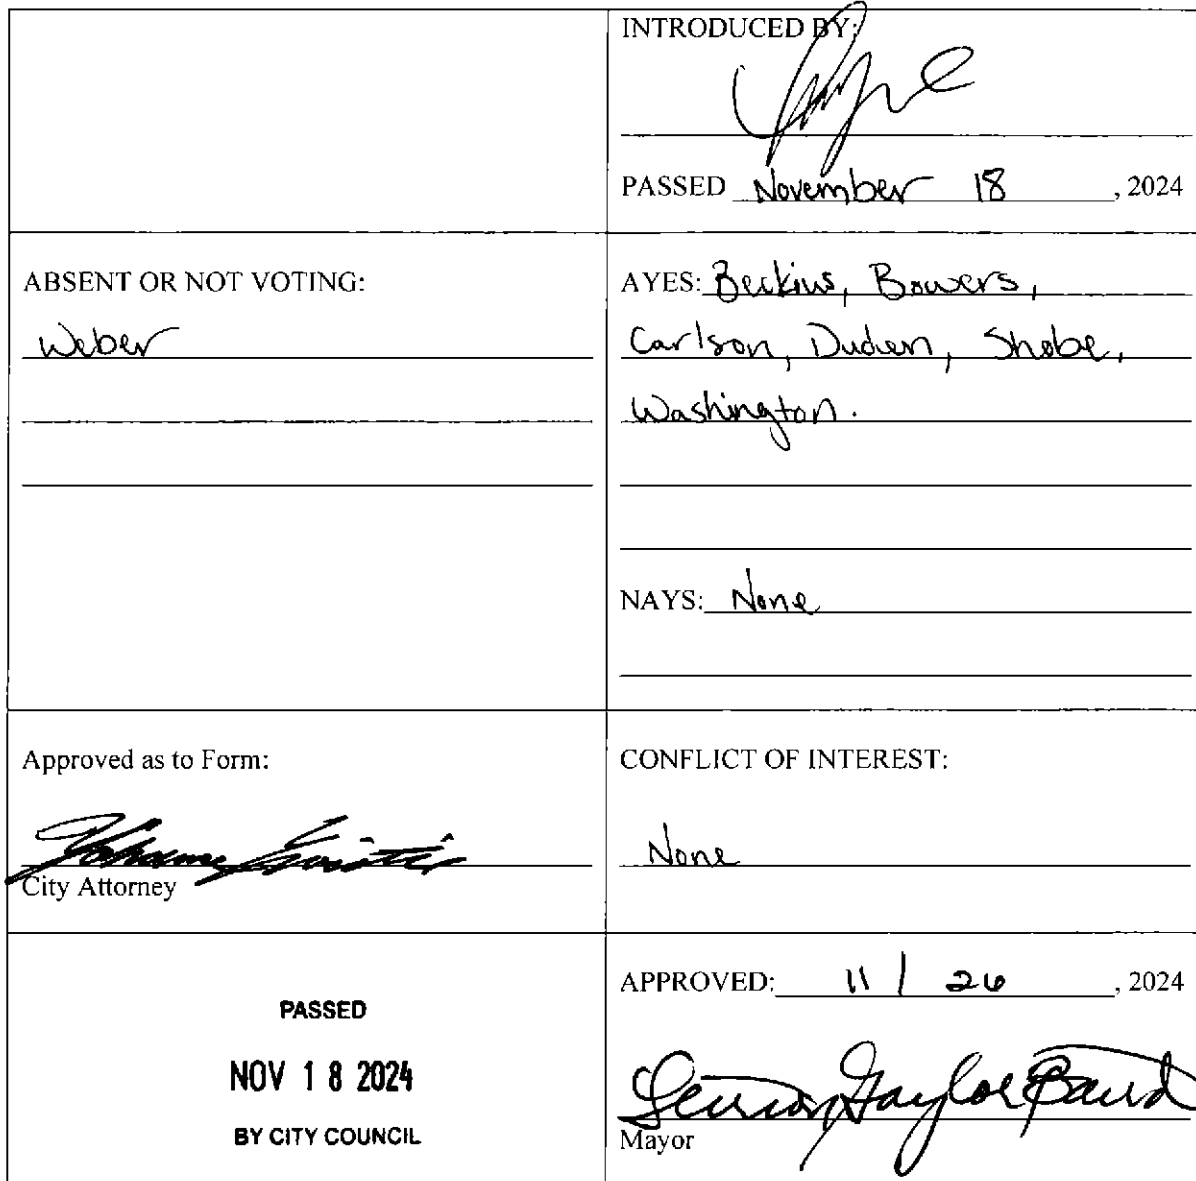 INTRODUCED BY:
PASSED November 18, 2024
ABSENT OR NOT VOTING:
Weber
AYES: Beckius, Bowers,
Carlson, Duden, Shobe,
Washington.
NAYS: None
Approved as to Form:
City Attorney
CONFLICT OF INTEREST:
None
PASSED
NOV 18 2024
BY CITY COUNCIL
APPROVED: 11 / 26, 2024
Gaylor Baird
Mayor